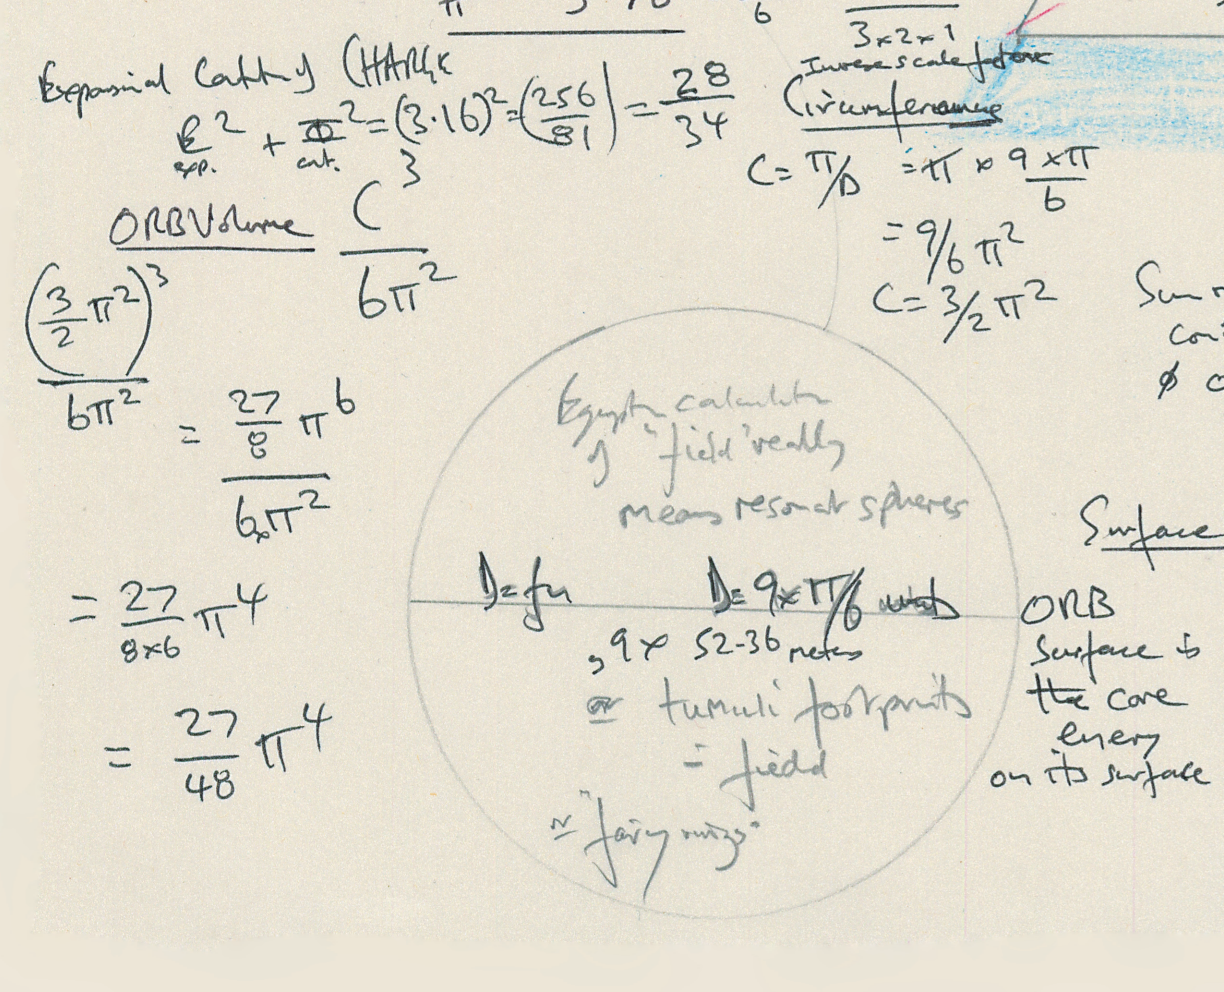 6
3×2×1
Inverse scale factor
CHARGE
exp.² + Φ² = (3·16)² = (256/81) = 28/34
cat.
Circumference
C = π/D = π × 9×π/6
= 9/6 π²
C = 3/2 π²
ORB Volume C³/6π²
(3/2 π²)³/6π² = 27/8 π⁶/6×π²
= 27/8×6 π⁴
= 27/48 π⁴
Sun
Ø
of "field" really
means resonat spheres
D = 9×π/6
9 × 52-36 meters
or tumuli footprints
= field
≈ "fairy rings"
Surface
ORB
surface is
the core
energy
on its surface